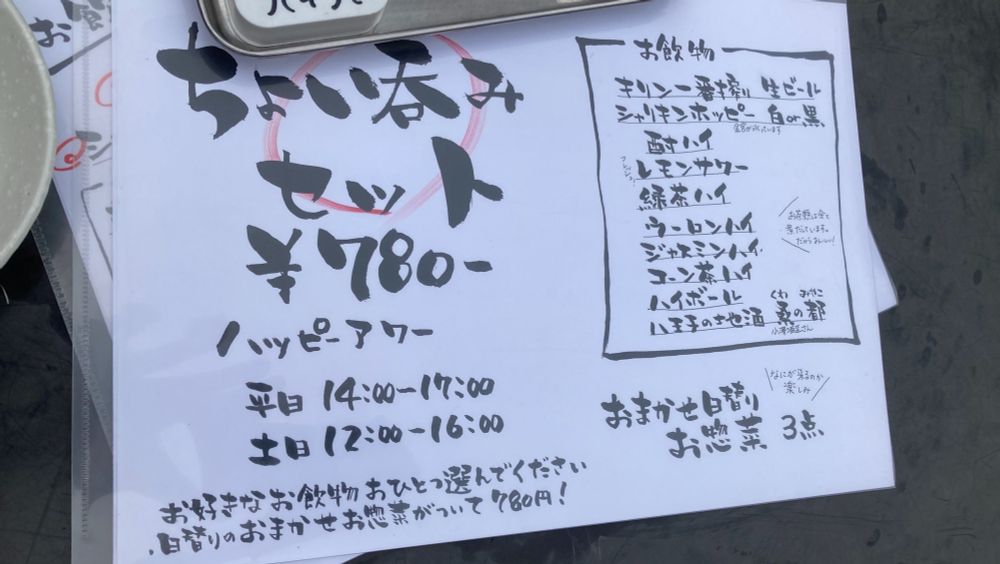 ちょい呑み
セット
¥780-
ハッピーアワー
平日 14:00-17:00
土日 12:00-16:00
お好きなお飲物おひとつ選んでください
日替りのおまかせお惣菜がついて780円!
お飲物
キリン一番搾り 生ビール
シャリキンホッピー 白or黒
酎ハイ
レモンサワー
緑茶ハイ
ウーロンハイ
ジャスミンハイ
コーン茶ハイ
お茶類は全て
煮だしています。
だからおいしい!
ハイボール
くわ みやこ
八王子の地酒 桑の都
小澤酒造さん
なにが来るのか
楽しみ
おまかせ日替り
お惣菜 3点